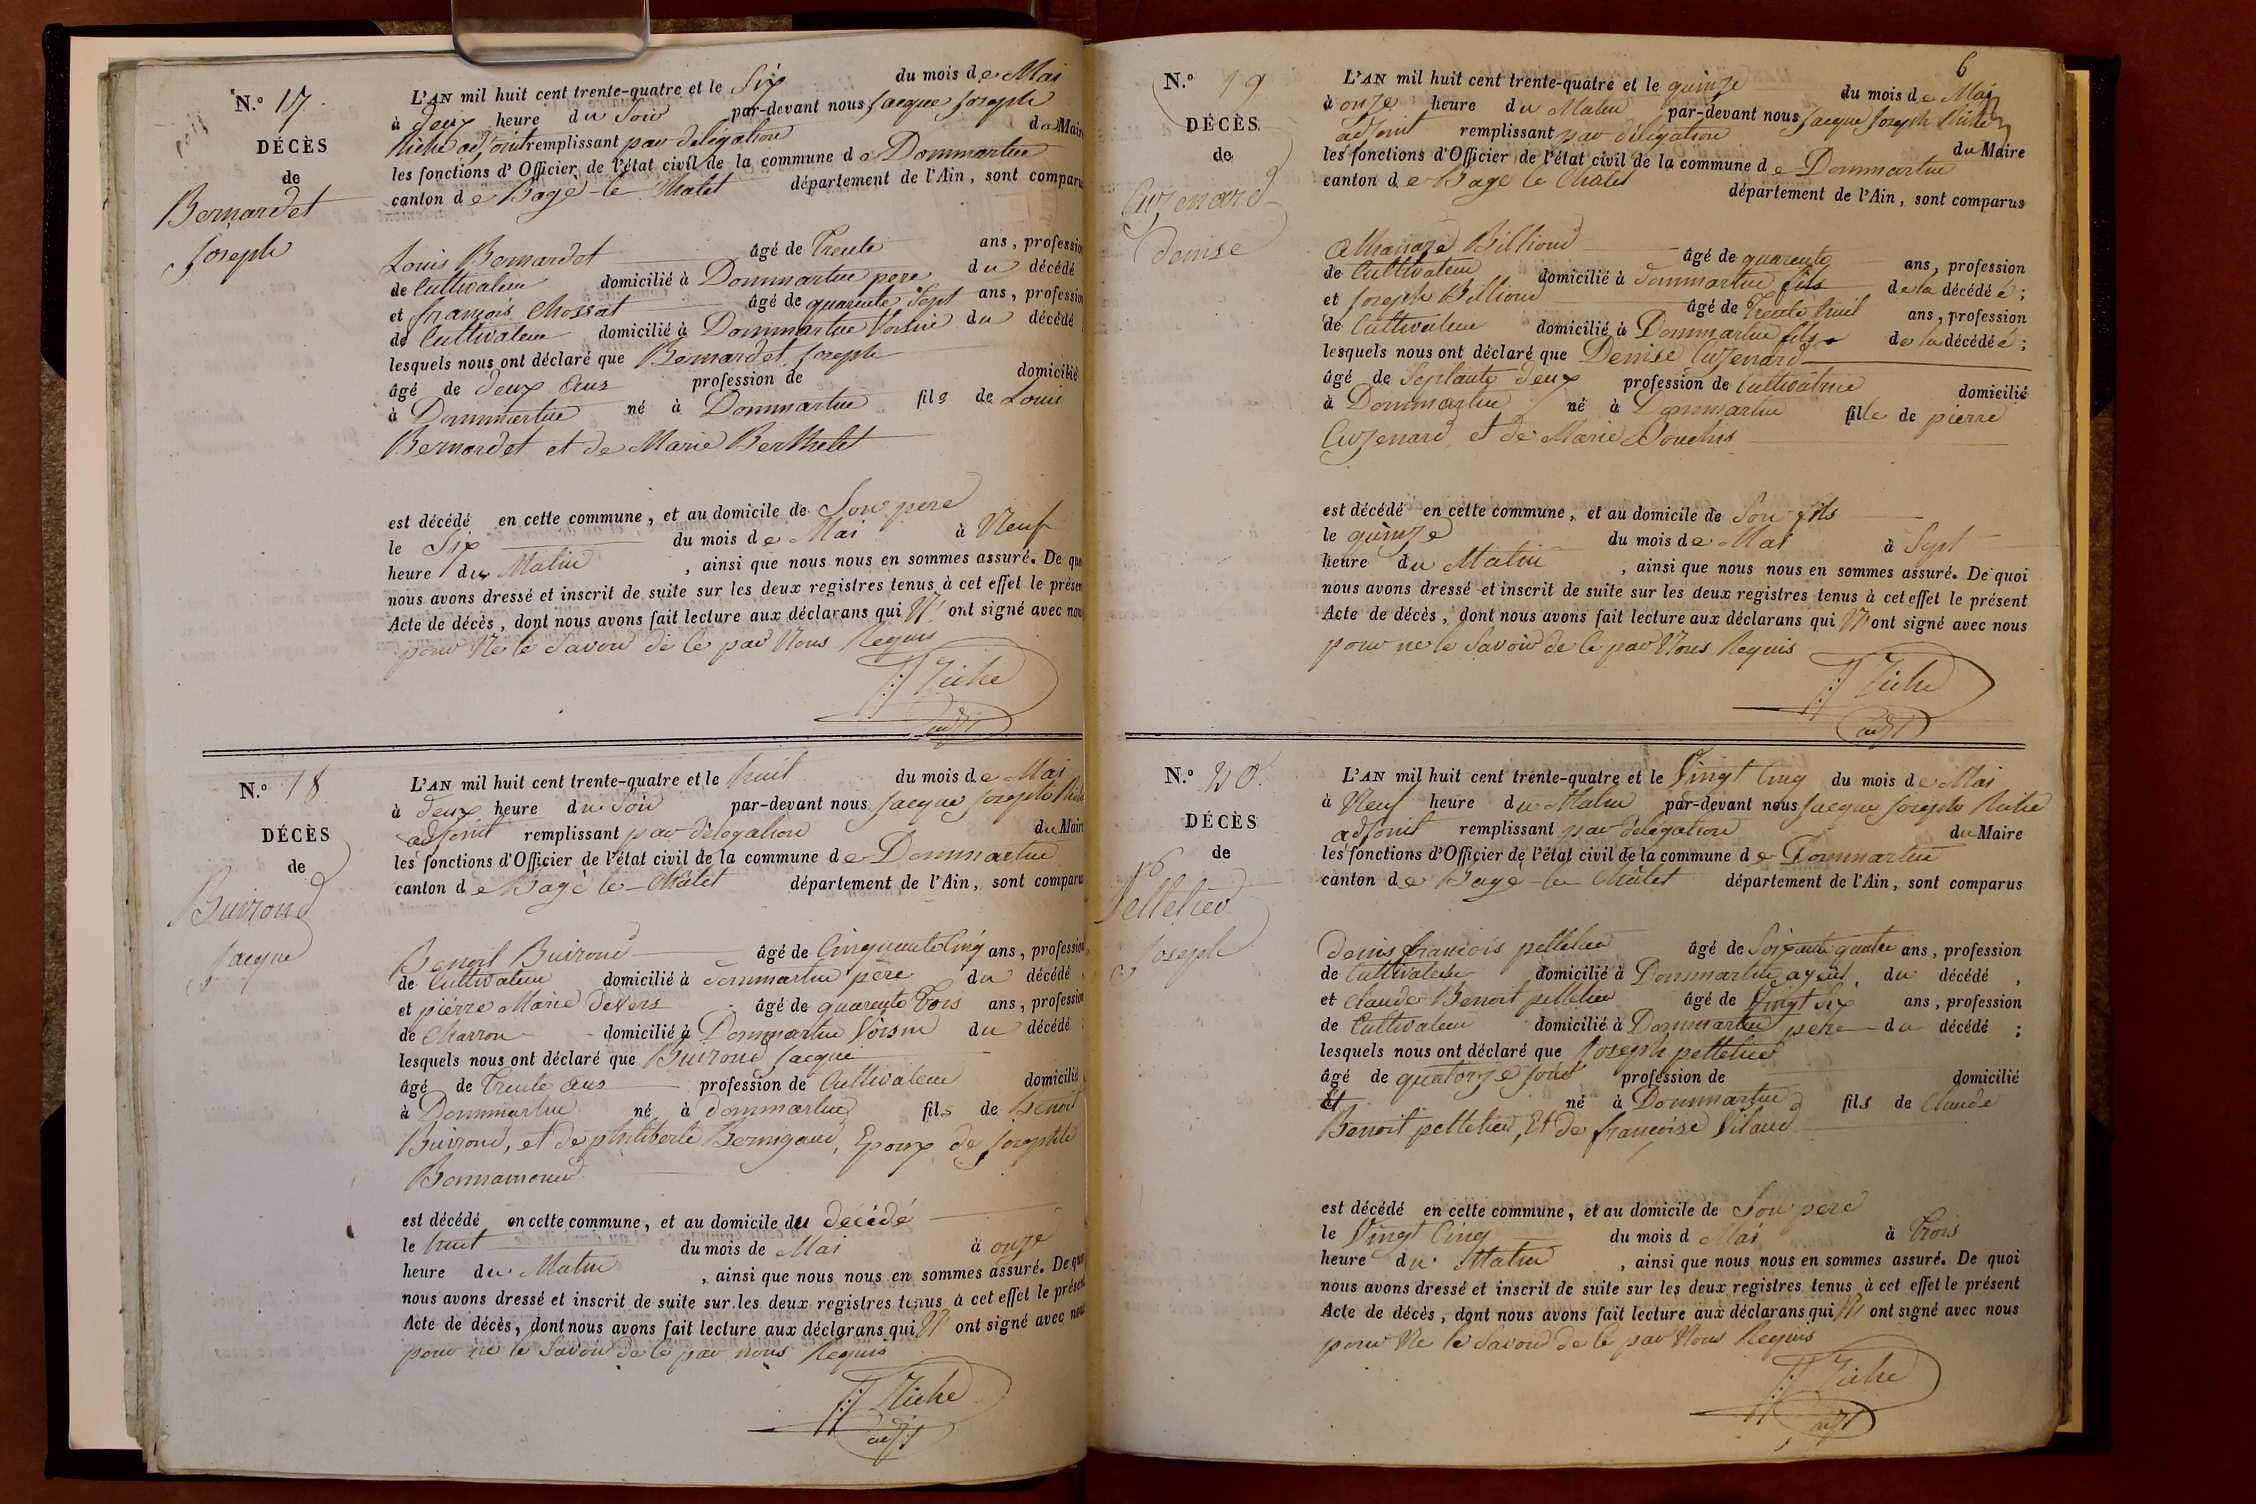 N.º 17.
DÉCÈS
de
Bernardet
Joseph
L'AN mil huit cent trente-quatre et le Six du mois de Mai
à deux heure du Soir par-devant nous Jacque Joseph
Riche adjoint remplissant par délégation du Mair
les fonctions d'Officier de l'état civil de la commune de Dommartin
canton de Bagé-le Chatel département de l'Ain, sont comparu
Louis Bernardet âgé de Trente ans, profession
de Cultivateur domicilié à Dommartin pere du décédé
et françois Chossat âgé de quarente Sept ans, profession
de Cultivateur domicilié à Dommartin Voisin du décédé
lesquels nous ont déclaré que Bernardet Joseph
âgé de deux Ans profession de domicilié
à Dommartin né à Dommartin fils de Louis
Bernardet et de Marie Berthelet
est décédé en cette commune, et au domicile de Son pere
le Six du mois de Mai à Neuf
heure du Matin, ainsi que nous nous en sommes assuré. De quo
nous avons dressé et inscrit de suite sur les deux registres tenus à cet effet le présen
Acte de décès, dont nous avons fait lecture aux déclarans qui N' ont signé avec nou
pour Ne le Savoir de ce par Nous Requis
JJ Riche
adjt
N.º 18
DÉCÈS
de
Buiron
Jacque
L'AN mil huit cent trente-quatre et le huit du mois de Mai
à deux heure du Soir par-devant nous Jacque Joseph Riche
adjoint remplissant par délégation du Mair
les fonctions d'Officier de l'état civil de la commune de Dommartin
canton de Bagé le-Châtel département de l'Ain, sont comparu
Benoit Buiron âgé de Cinquante Cinq ans, profession
de Cultivateur domicilié à dommartin père du décédé
et piérre Marie Devers âgé de quarente Trois ans, profession
de Charron domicilié à Dommartin Voisin du décédé
lesquels nous ont déclaré que Buiron Jacque
âgé de Trente ans profession de Cultivateur domicilié
à Dommartin né à dommartin fils de Benoit
Buiron, et de philiberte Bernigaud, Epoux de Josephte
Bonnamour
est décédé en cette commune, et au domicile du décédé
le huit du mois de Mai à onze
heure du Matin, ainsi que nous nous en sommes assuré. De quo
nous avons dressé et inscrit de suite sur les deux registres tenus à cet effet le présen
Acte de décès, dont nous avons fait lecture aux déclarans qui N' ont signé avec nou
pour ne le Savoir de ce par nous Requis
JJ Riche
adjt
6
N.º 19
DÉCÈS
de
Cuzenard
denise
L'AN mil huit cent trente-quatre et le quinze du mois de Mai
à onze heure du Matin par-devant nous Jacque Joseph Riche
adjoint remplissant par délégation du Maire
les fonctions d'Officier de l'état civil de la commune de Dommartin
canton de Bagé le Châtel département de l'Ain, sont comparus
Billioud âgé de quarente ans, profession
de Cultivateur domicilié à dommartin fils de la décédée;
et Joseph Billioud âgé de Trente huit ans, profession
de Cultivateur domicilié à Dommartin fils de la décédée;
lesquels nous ont déclaré que Denise Cuzenard
âgé de Septante deux profession de Cultivatrice domicilié
à Dommartin né à Dommartin fille de pierre
Cuzenard et de Marie
est décédé en cette commune, et au domicile de Son fils
le quinze du mois de Mai à Sept
heure du Matin, ainsi que nous nous en sommes assuré. De quoi
nous avons dressé et inscrit de suite sur les deux registres tenus à cet effet le présent
Acte de décès, dont nous avons fait lecture aux déclarans qui N' ont signé avec nous
pour ne le Savoir de ce par Nous Requis
JJ Riche
adjt
N.º 20.
DÉCÈS
de
Pelletier
Joseph
L'AN mil huit cent trente-quatre et le Vingt Cinq du mois de Mai
à Neuf heure du Matin par-devant nous Jacque Joseph Riche
adjoint remplissant par délégation du Maire
les fonctions d'Officier de l'état civil de la commune de Dommartin
canton de Bagé-le Châtel département de l'Ain, sont comparus
Denis françois pelletier âgé de Soixante quatre ans, profession
de Cultivateur domicilié à Dommartin ayeul du décédé,
et Claude Benoit pelletier âgé de Vingt Six ans, profession
de Cultivateur domicilié à Dommartin pere du décédé;
lesquels nous ont déclaré que Joseph pelletier
âgé de quatorze jour profession de domicilié
à né à Dommartin fils de Claude
Benoit pelletier, Et de françoise Vilaud
est décédé en cette commune, et au domicile de Son pere
le Vingt Cinq du mois d Mai à Trois
heure du Matin, ainsi que nous nous en sommes assuré. De quoi
nous avons dressé et inscrit de suite sur les deux registres tenus à cet effet le présent
Acte de décès, dont nous avons fait lecture aux déclarans qui N' ont signé avec nous
pour Ne le Savoir de ce par Nous Requis
JJ Riche
adjt